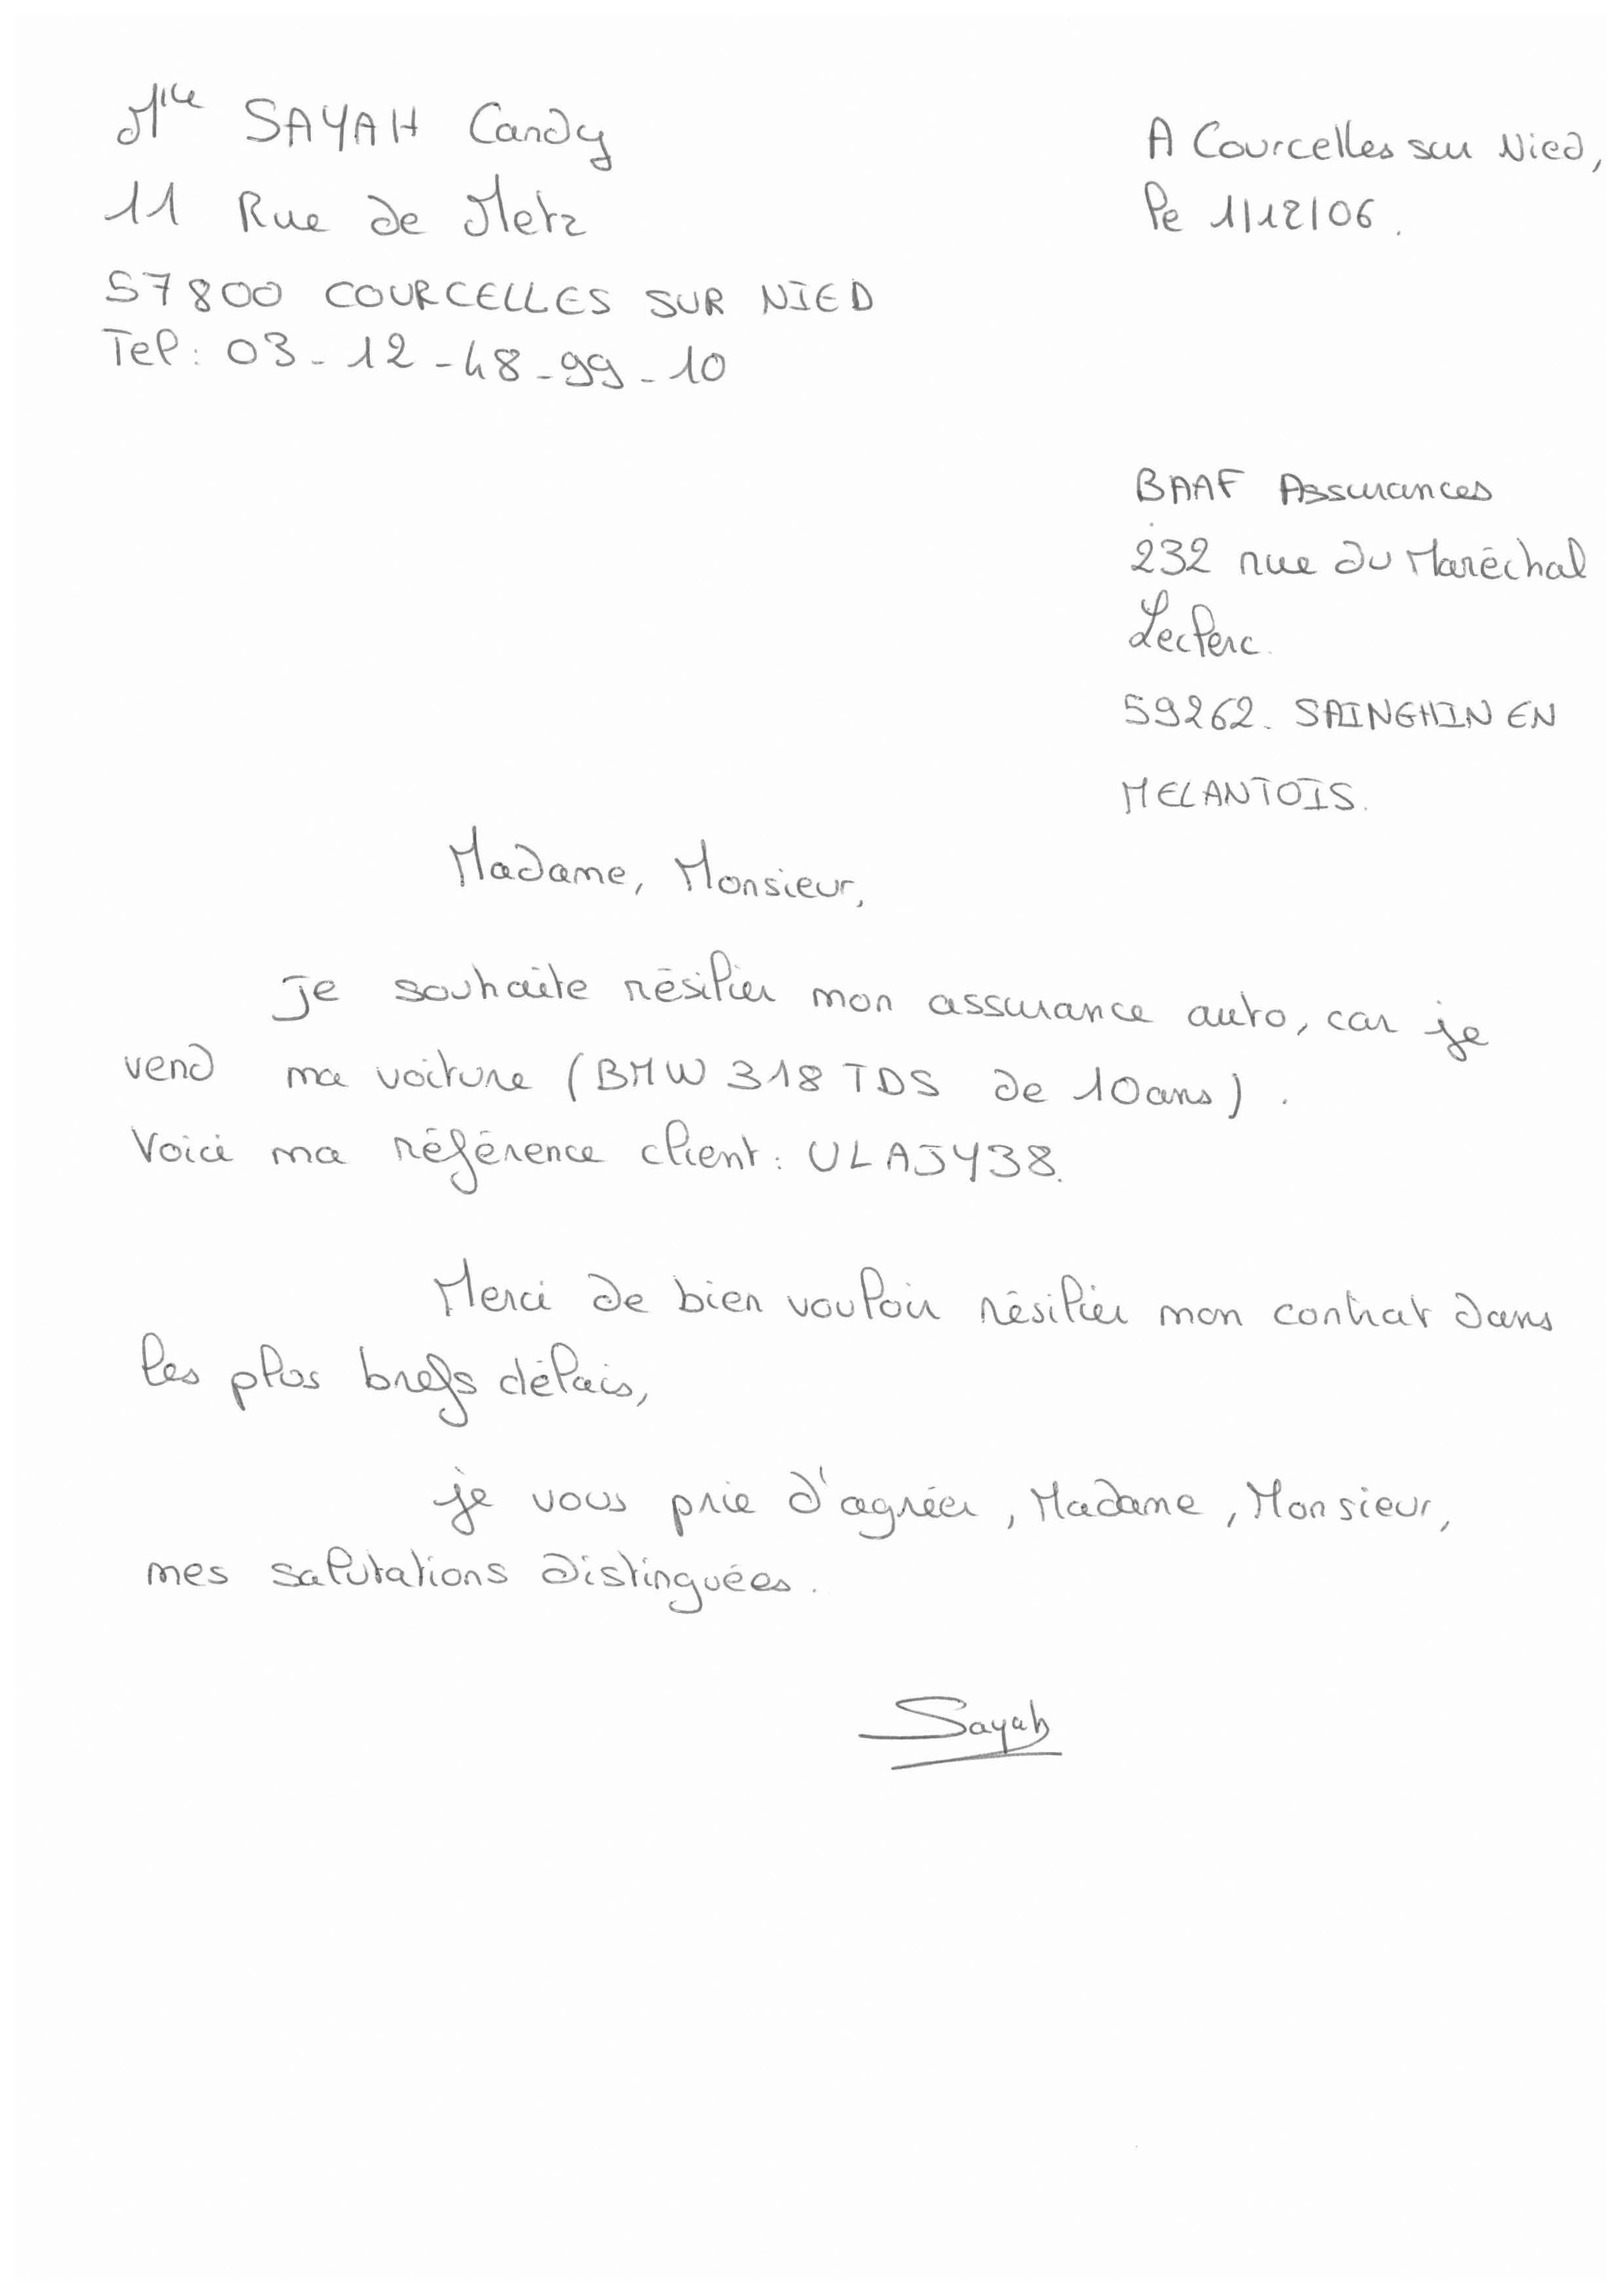 Mlle SAYAH Candy
11 Rue de Metz
57800 COURCELLES SUR NIED
Tel: 03-12-48-99-10
A Courcelles sur Nied,
le 1/12/06.
BAAF Assurances
232 rue du Maréchal
Leclerc.
59262. SAINGHIN EN
MELANTOIS.
Madame, Monsieur,
je souhaite résilier mon assurance auto, car je
vend ma voiture (BMW 318 TDS de 10ans).
Voici ma référence client: ULAJY38.
Merci de bien vouloir résilier mon contrat dans
les plus brefs délais,
je vous prie d'agréer, Madame, Monsieur,
mes salutations distinguées.
Sayah